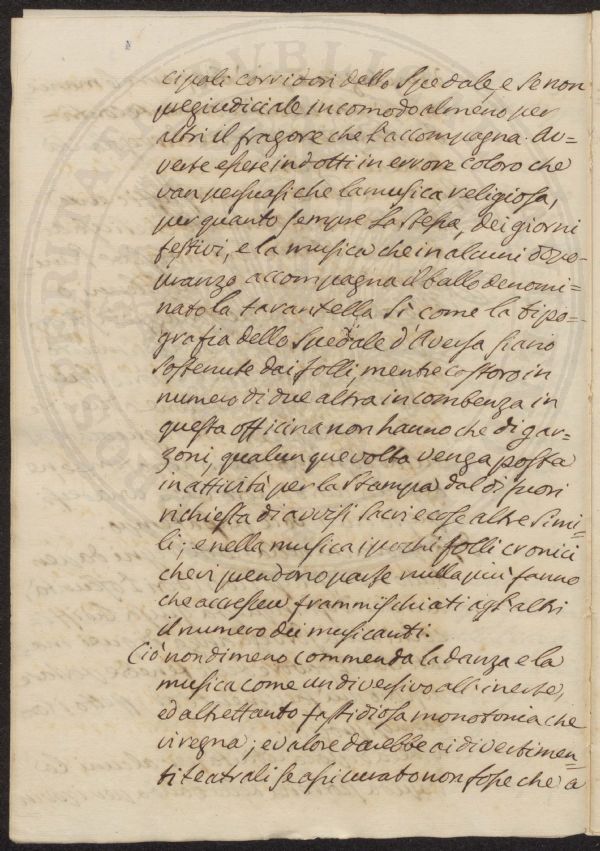 cipali corridori dello Spedale, e se non
pregiudiciale incomodo almeno per
altri il fragore che l'accompagna. Av=
verte essere indotti in errore coloro che
van persuasi che la musica religiosa,
per quanto sempre la stessa, dei giorni
festivi, e la musica che in alcuni dopo-
pranzo accompagna il ballo denomi=
nato la tarantella sì come la tipo=
grafia dello Spedale d'Aversa siano
sostenute dai folli, mentre costoro in
numero di due altra incombenza in
questa officina non hanno che di gar=
zoni, qualunque volta venga posta
in attività per la stampa dal di fuori
richiesta di avvisi sacri e cose altre simi=
li; e nella musica i pochi folli cronici
che vi prendono parte nulla più fanno
che accrescer frammischiati agli altri
il numero dei musicanti.
Ciò nondimeno commenda la danza e la
musica come un diversivo all'inerte,
ed altrettanto fastidiosa monotonia che
vi regna; e valore darebbe ai divertimen=
ti teatrali se assicurato non fosse che a